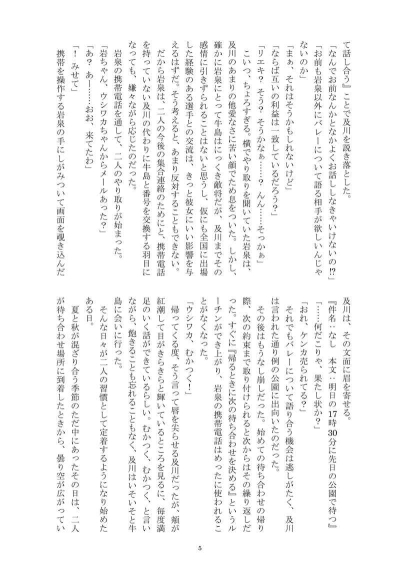 て話し合う』ことで及川を説き落とした。
「なんでお前なんかとなかよくお話ししなきゃいけないの!?」
「お前も岩泉以外にバレーについて語る相手が欲しいんじゃ
ないのか」
「まぁ、それはそうかもしれないけど」
「ならば互いの利益は一致しているだろう?」
「リエキ? そう? そうかなぁ……? んん……そっかぁ」
　こいつ、ちょろすぎる。横でやり取りを聞いていた岩泉は、
及川のあまりの他愛なさに苦い顔でため息をついた。しかし、
確かに岩泉にとって牛島はにっくき敵将だが、及川までその
感情に引きずられることはないと思うし、仮にも全国に出場
した経験のある選手との交流は、きっと彼女にいい影響を与
えるはずだ。そう考えると、あまり反対することもできない。
　だから岩泉は、二人の今後の集合連絡のためにと、携帯電話
を持っていない及川の代わりに牛島と番号を交換する羽目に
なっても、嫌々ながら応じたのだった。
　岩泉の携帯電話を通して、二人のやり取りが始まった。
「岩ちゃん、ウシワカちゃんからメールあった?」
「あ? あー……おお、来てたわ」
「! みせて」
　携帯を操作する岩泉の手にしがみついて画面を覗き込んだ
及川は、その文面に眉を寄せる。
『件名：なし　本文：明日の17時30分に先日の公園で待つ』
「……何だこりゃ、果たし状か?」
「おれ、ケンカ売られてる?」
　それでもバレーについて語り合う機会は逃しがたく、及川
は言われた通り例の公園に出向いたのだった。
　その後はもうなし崩しだった。始めての待ち合わせの帰り
際、次の約束まで取り付けられると次からはその繰り返しだ
った。すぐに『帰るときに次の待ち合わせを決める』というル
ーチンができ上がり、岩泉の携帯電話はめったに使われるこ
とがなくなった。
「ウシワカ、むかつく!」
　帰ってくる度、そう言って唇を尖らせる及川だったが、頬が
紅潮して目がきらきらと輝いているところを見るに、毎度満
足のいく話ができているらしい。むかつく、むかつく、と言い
ながら、飽きることも忘れることもなく、及川はいそいそと牛
島に会いに行った。
　そんな日々が二人の習慣として定着するようになり始めた
ある日。
　夏と秋が混ざり合う季節のただ中にあったその日は、二人
が待ち合わせ場所に到着したときから、曇り空が広がってい
5